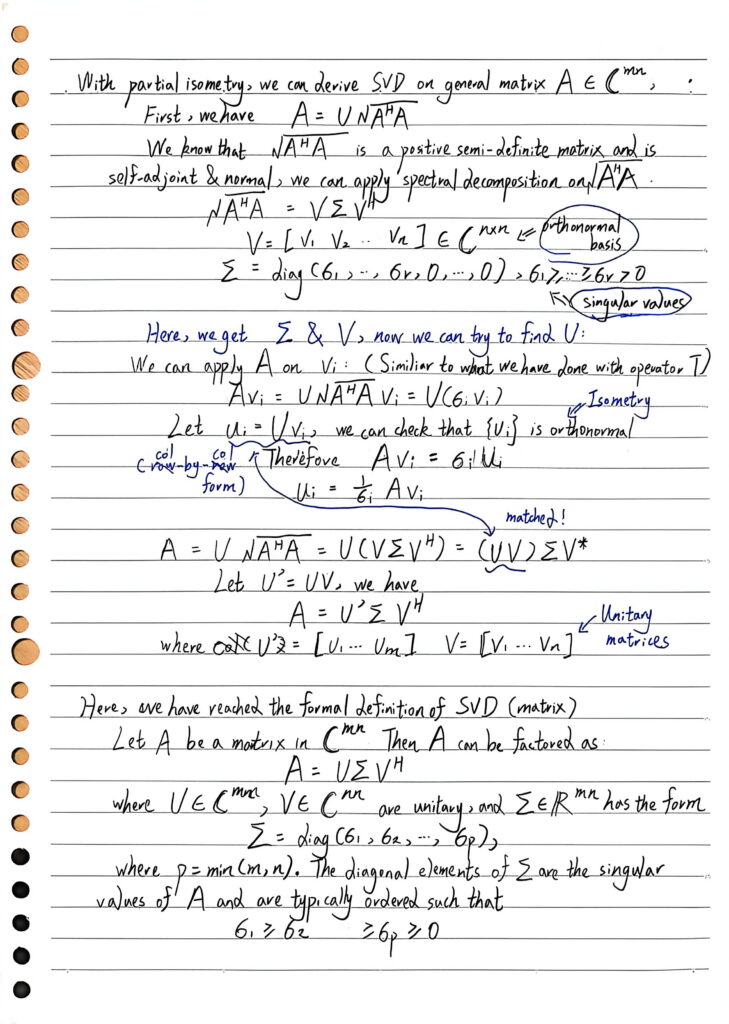 With partial isometry, we can derive SVD on general matrix A ∈ ℂ^{mn},
First, we have A = U√(A^H A)
We know that √(A^H A) is a positive semi-definite matrix and is
self-adjoint & normal, we can apply spectral decomposition on √(A^H A).
√(A^H A) = VΣV^H
V = [V₁ V₂ ... Vₙ] ∈ ℂ^{n×n} ⇐ orthonormal basis
Σ = diag(б₁, ..., бr, 0, ..., 0), б₁ ≥ ... ≥ бr > 0
singular values
Here, we get Σ & V, now we can try to find U:
We can apply A on Vi: (Similiar to what we have done with operator T)
AVi = U√(A^H A) Vi = U(бi Vi)
Isometry
Let Ui = UVi, we can check that {Ui} is orthonormal
(col-by-col form)
Therefore AVi = бi Ui
Ui = 1/бi AVi
matched!
A = U√(A^H A) = U(VΣV^H) = (UV)ΣV*
Let U' = UV, we have
A = U'ΣV^H
where U' = [U₁ ... Um] V = [V₁ ... Vn] Unitary matrices
Here, we have reached the formal definition of SVD (matrix)
Let A be a matrix in ℂ^{mn} Then A can be factored as:
A = UΣV^H
where U ∈ ℂ^{mm}, V ∈ ℂ^{nn} are unitary, and Σ ∈ ℝ^{mn} has the form
Σ = diag(б₁, б₂, ..., бp),
where p = min(m, n). The diagonal elements of Σ are the singular
values of A and are typically ordered such that
б₁ ≥ б₂ ≥ бp ≥ 0